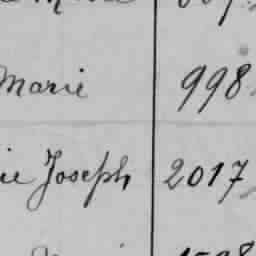 Marie 998
ie Joseph 2017